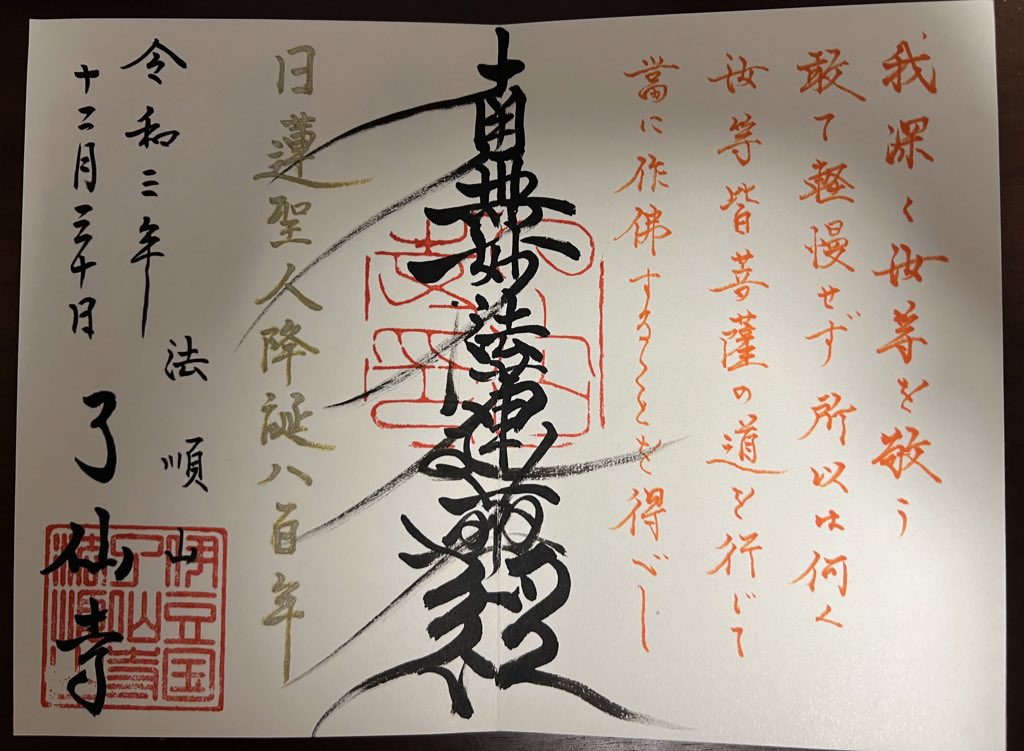 我深く汝等を敬う
敢て軽慢せず 所以は何ん
汝等皆菩薩の道を行じて
當に作佛することを得べし
南無妙法蓮華経
日蓮聖人降誕八百年
令和三年
十二月三十日
法順山
了仙寺
伊豆国
了仙寺
法順山